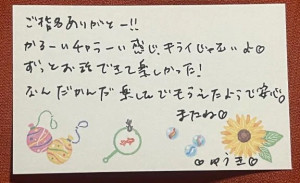 ご指名ありがとー!!
かるーいチャラーい感じ、キライじゃないよ♡
ずっとお話できて楽しかった!
なんだかんだ楽しんでもらえたようで安心。
またね♡
♡ゆうき♡